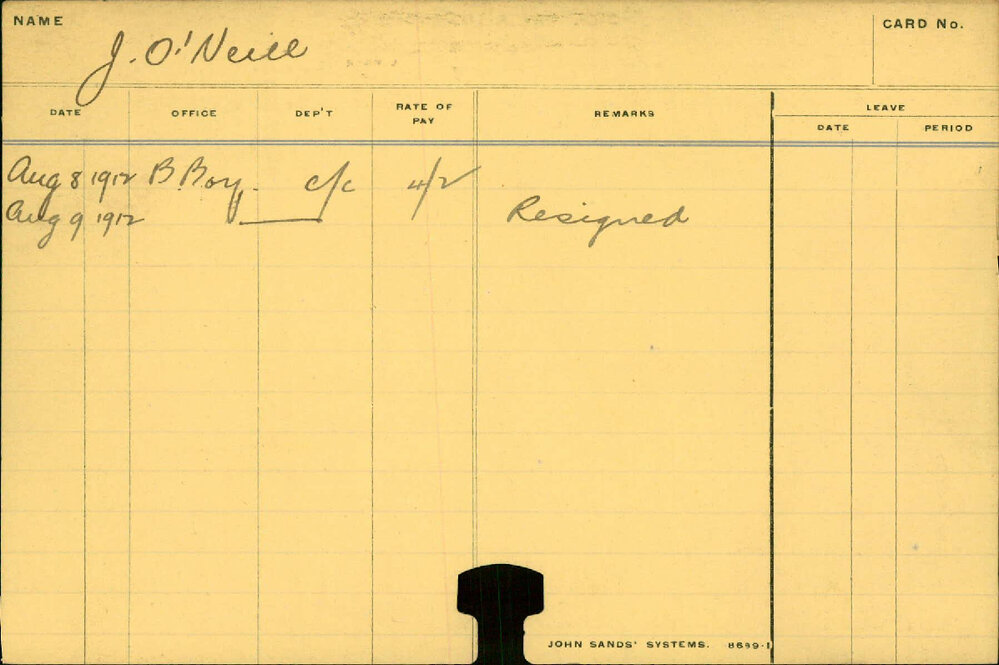 NAME
J. O'Neill
CARD No.
DATE OFFICE DEP'T RATE OF PAY REMARKS LEAVE
DATE PERIOD
Aug 8 1912 B. Boy. c/c 4/2
Aug 9 1912 Resigned
JOHN SANDS' SYSTEMS. 8639-1